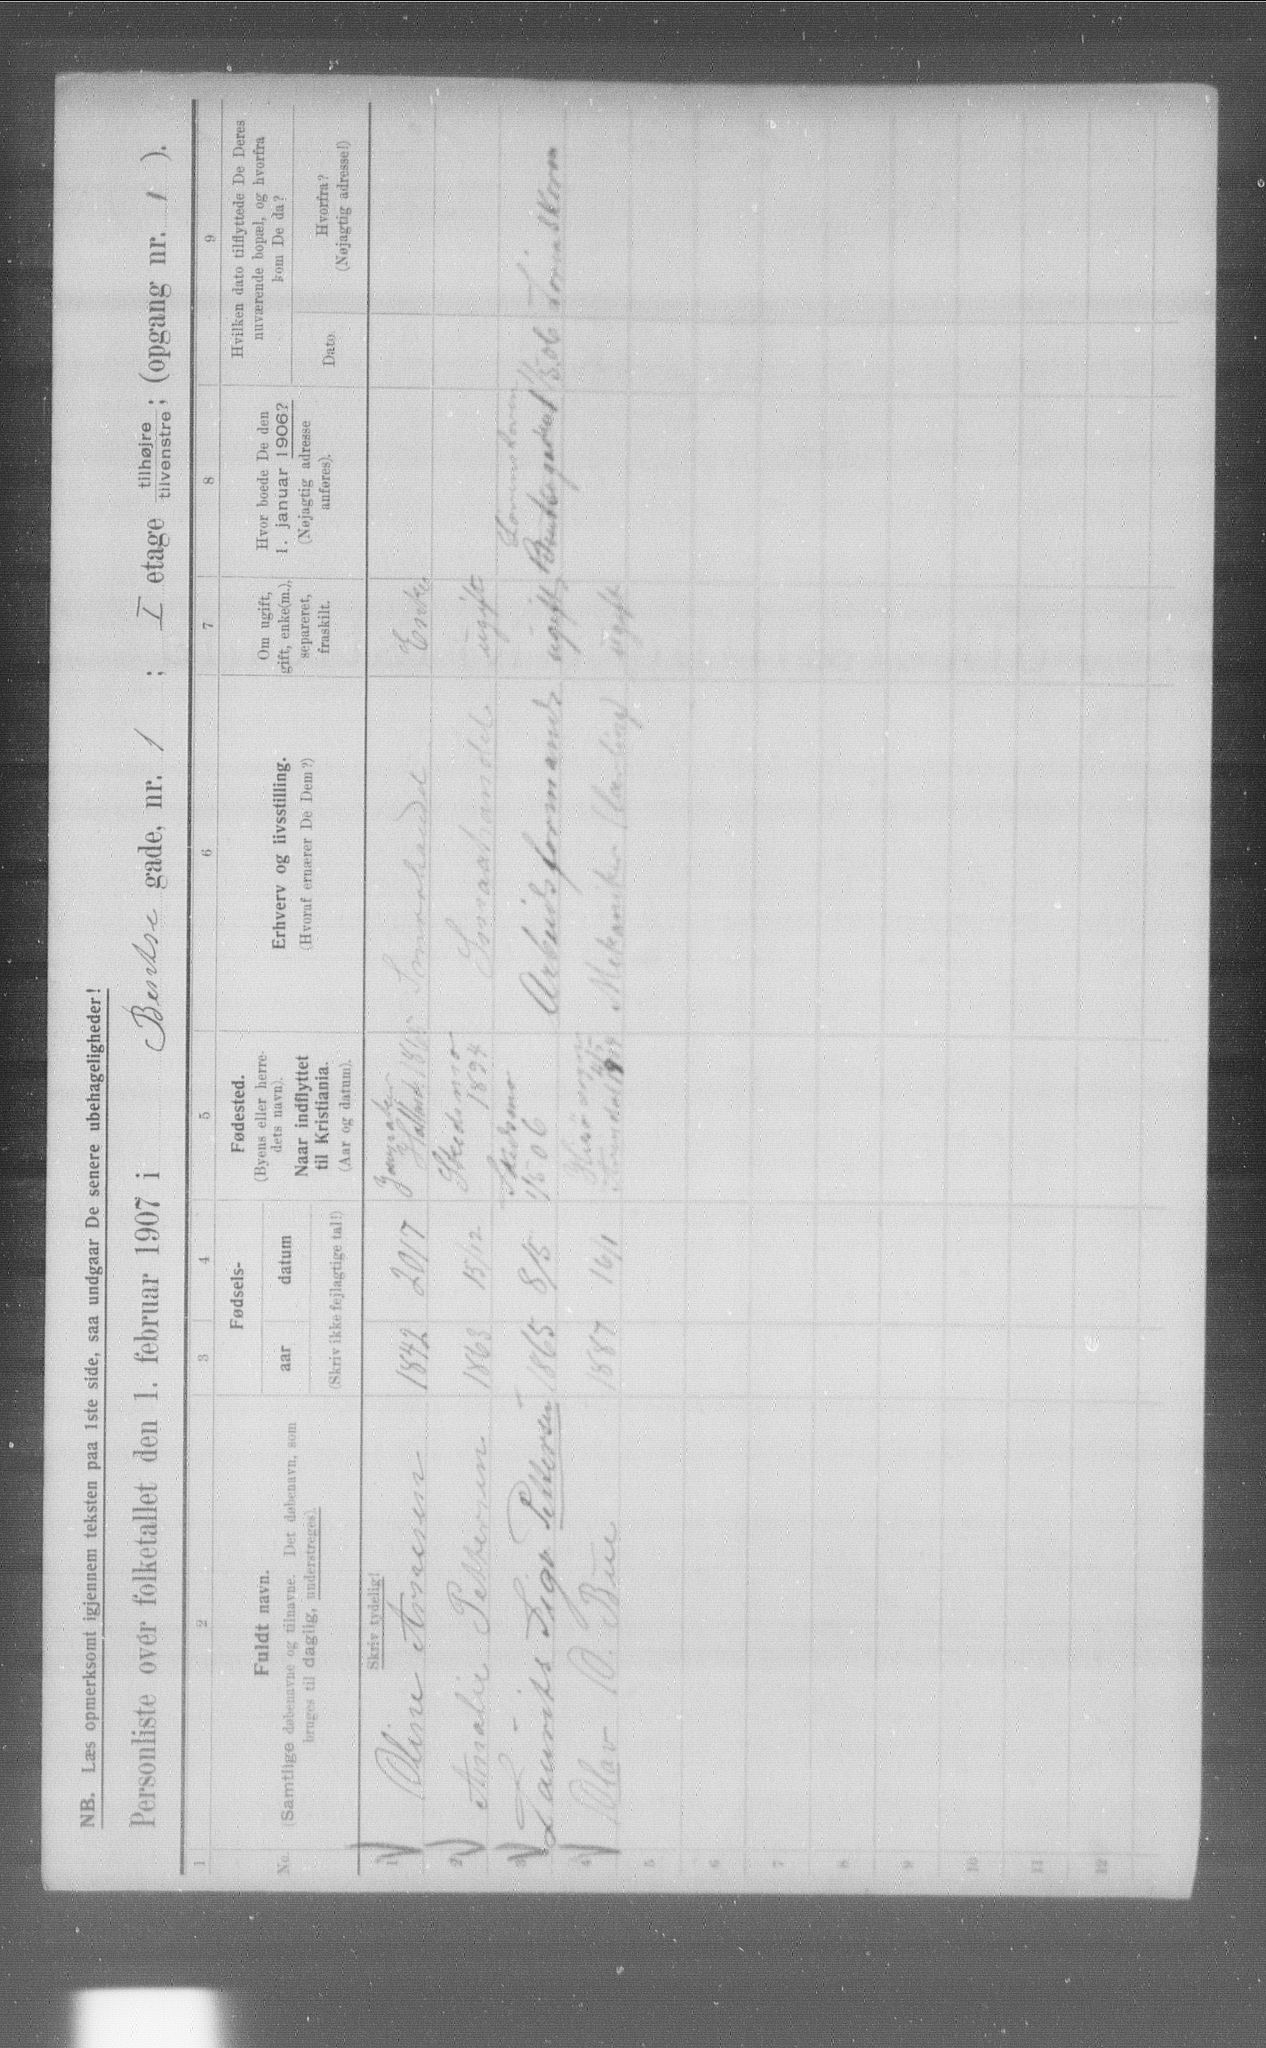 NB. Læs opmerksomt igjennem teksten paa 1ste side, saa undgaar De senere ubehageligheder!
Personliste over folketallet den 1. februar 1907 i Bentse gade, nr. 1 ; I etage tilhøjre tilvenstre; (opgang nr. 1 ).
1 2 3 4 5 6 7 8 9
No.
Fuldt navn.
(Samtlige døbenavne og tilnavne. Det døbenavn, som
bruges til daglig, understreges).
Fødsels-
aar datum
(Skriv ikke fejlagtige tal!)
Fødested.
(Byens eller herre-
dets navn).
Naar indflyttet
til Kristiania.
(Aar og datum).
Erhverv og livsstilling.
(Hvoraf ernærer De Dem?)
Om ugift,
gift, enke(m.),
separeret,
fraskilt.
Hvor boede De den
1. januar 1906?
(Nøjagtig adresse
anføres).
Hvilken dato tilflyttede De Deres
nuværende bopæl, og hvorfra
kom De da?
Dato.
Hvorfra?
(Nøjagtig adresse!)
Skriv tydelig!
1 Oline Arnesen 1842 20/7 Enke
2 Amalie Pettersen 1863 15/12 Skedsmo 1894 Smaahandel ugift
3 Laurits Pettersen 1865 8/5 Skedsmo 1/5 06 Arbeidsformand ugift
4 Olav O. Bue 1887 16/1 Mekaniker ugift
5
6
7
8
9
10
11
12